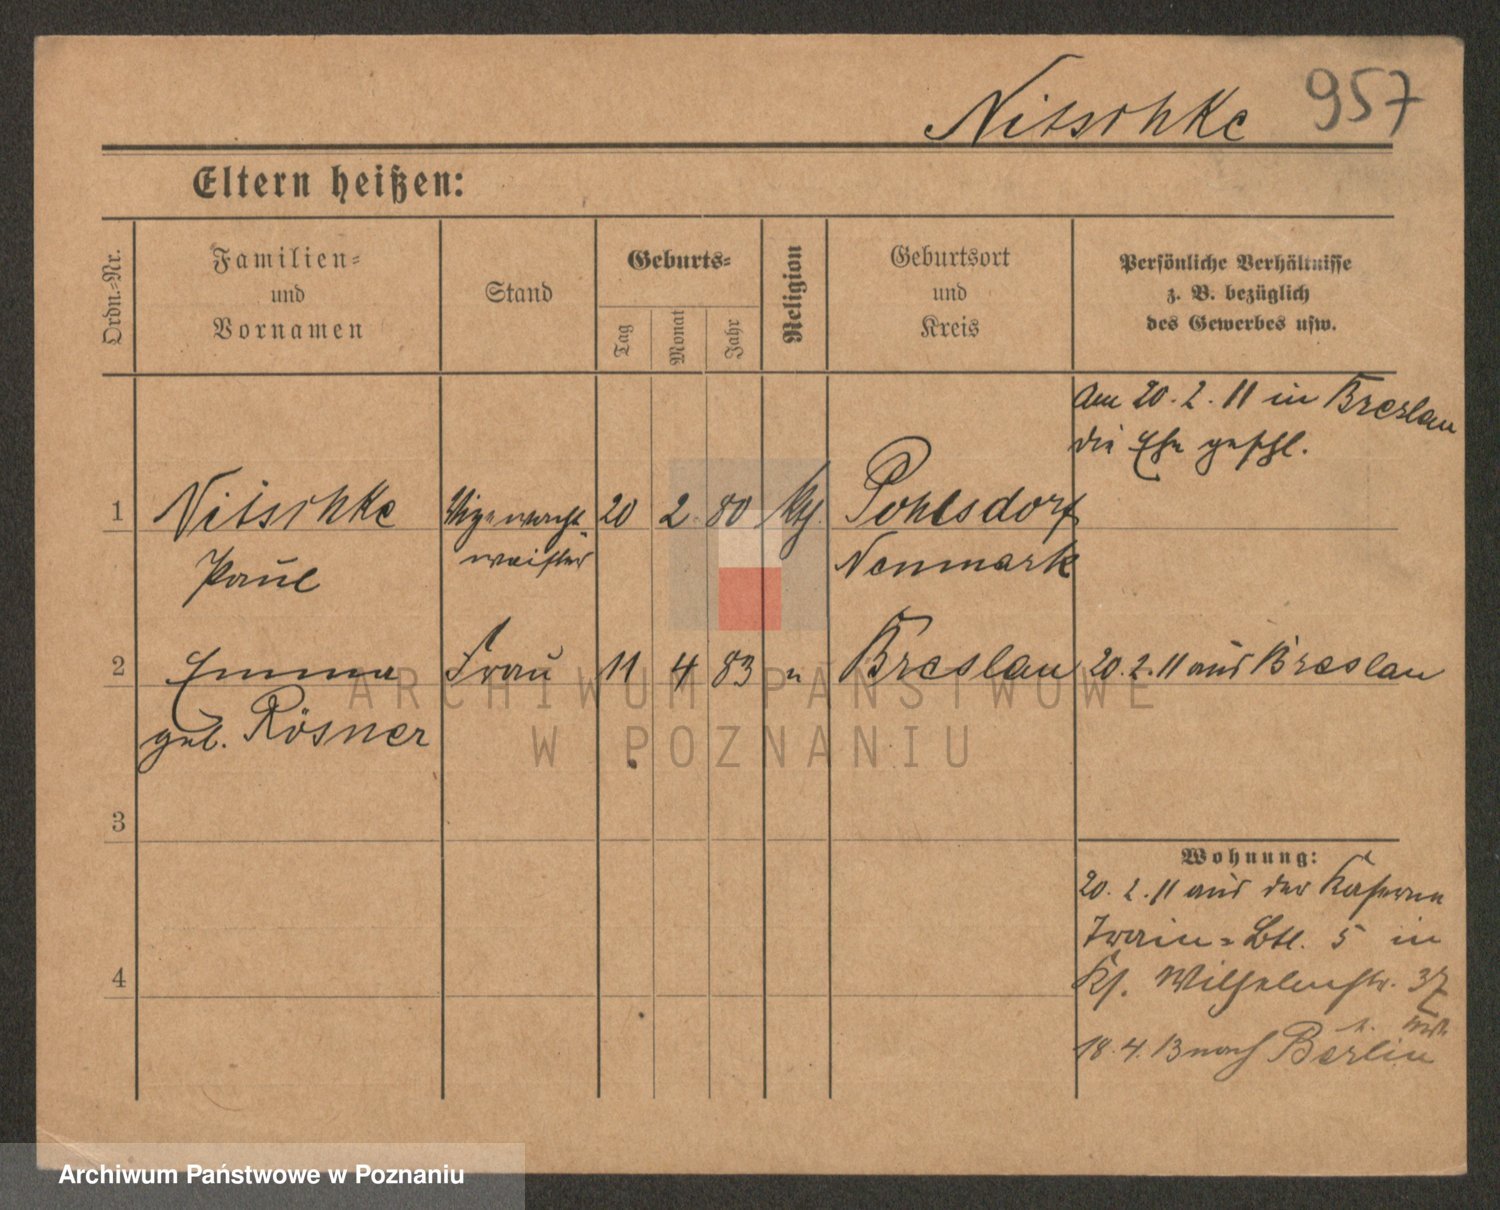 Nitschke 957
Eltern heißen:
Ordn.-Nr.
Familien-
und
Vornamen
Stand
Geburts-
Tag
Monat
Jahr
Religion
Geburtsort
und
Kreis
Persönliche Verhältnisse
z. B. bezüglich
des Gewerbes usw.
Am 20.2.11 in Breslau
die Ehe geschl.
1 Nitschke Vizewacht- 20 2. 80 Pohlsdorf
Paul meister Neumark
2 Emma Frau 11 4 83 " Breslau 20.2.11 aus Breslau
geb. Rösner
3
Wohnung:
20.2.11 aus der Kaserne
Train-Btl. 5 in
4
Wilhelmstr. 37
18.4.13 nach Berlin
ARCHIWUM PAŃSTWOWE
W POZNANIU
Archiwum Państwowe w Poznaniu